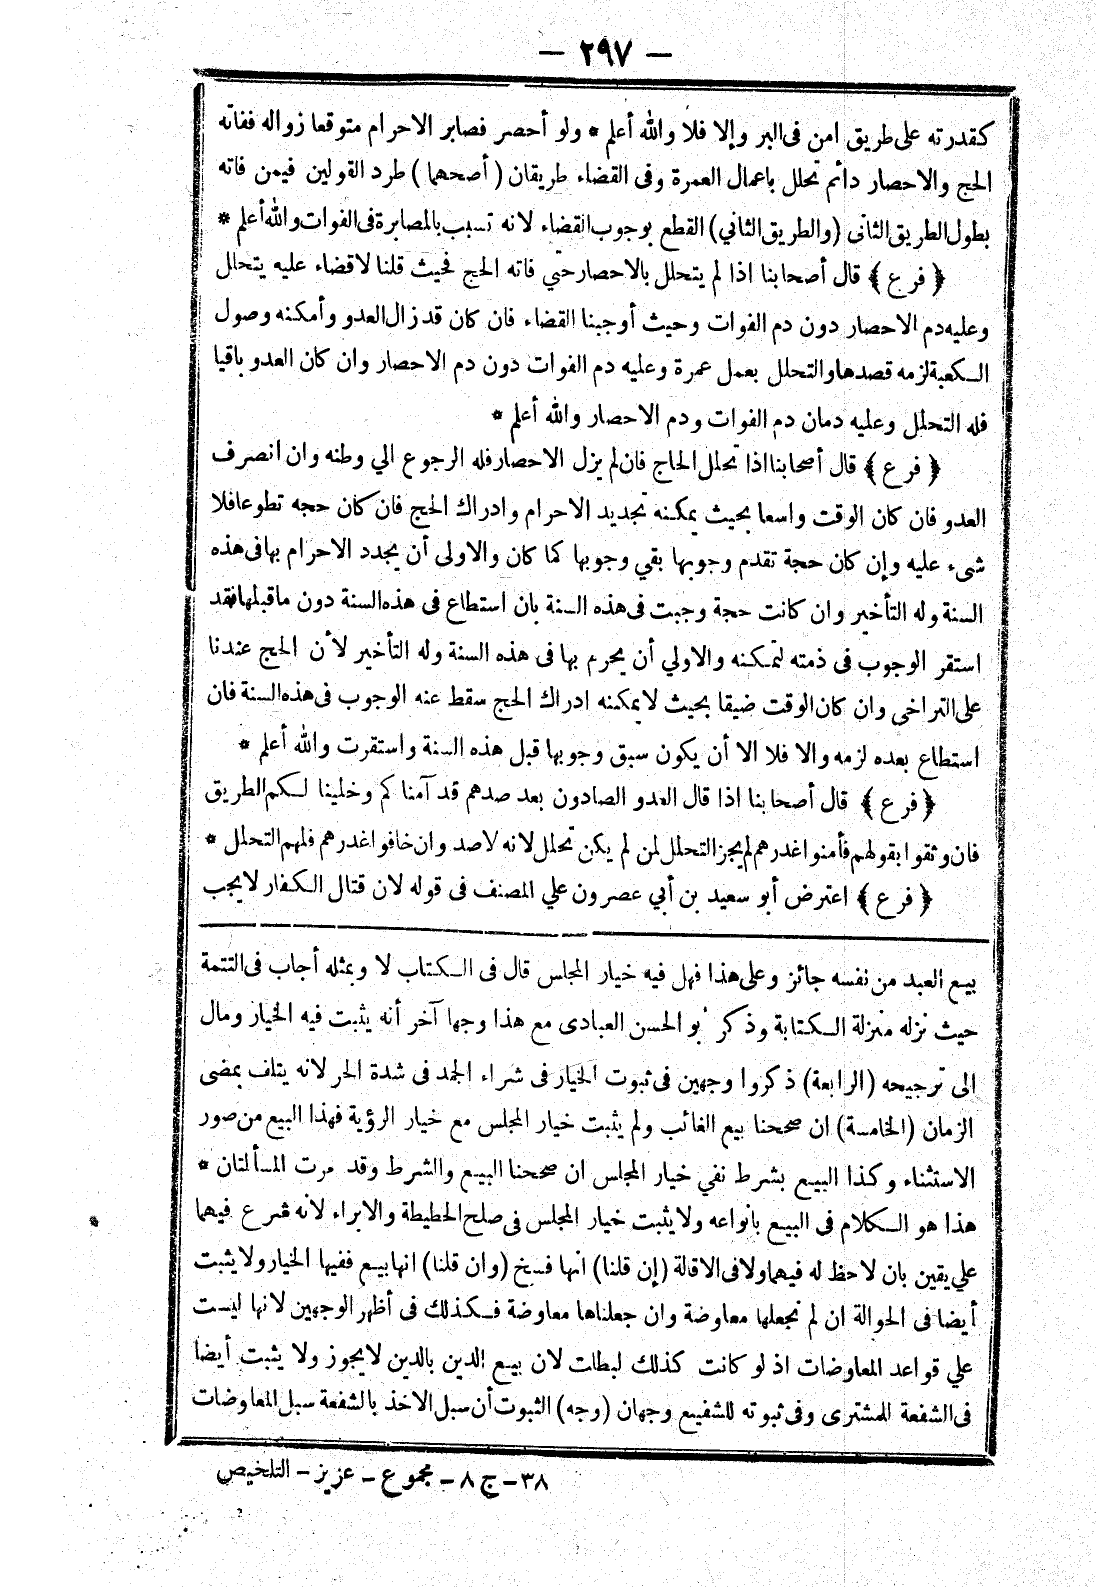 — ٢٩٧ —
كقدرته على طريق امن فى البر وإلا فلا والله أعلم * ولو أحصر فصابر الاحرام متوقعا زواله ففاته
الحج والاحصار دائم تحلل باعمال العمرة وفى القضاء طريقان ( أصحهما ) طرد القولين فيمن فاته
بطول الطريق الثانى (والطريق الثاني) القطع بوجوب القضاء لانه تسبب بالمصابرة فى الفوات والله أعلم *
﴿ فرع ﴾ قال أصحابنا اذا لم يتحلل بالاحصار حتي فاته الحج فحيث قلنا لا قضاء عليه يتحلل
وعليه دم الاحصار دون دم الفوات وحيث أوجبنا القضاء فان كان قد زال العدو وأمكنه وصول
الكعبة لزمه قصدها والتحلل بعمل عمرة وعليه دم الفوات دون دم الاحصار وان كان العدو باقيا
فله التحلل وعليه دمان دم الفوات ودم الاحصار والله أعلم *
﴿ فرع ﴾ قال أصحابنا اذا تحلل الحاج فان لم يزل الاحصار فله الرجوع الي وطنه وان انصرف
العدو فان كان الوقت واسعا بحيث يمكنه تجديد الاحرام وادراك الحج فان كان حجه تطوعا فلا
شىء عليه وإن كان حجة تقدم وجوبها بقي وجوبها كما كان والاولى أن يجدد الاحرام بها فى هذه
السنة وله التأخير وان كانت حجة وجبت فى هذه السنة بان استطاع فى هذه السنة دون ما قبلها فقد
استقر الوجوب فى ذمته لتمكنه والاولي أن يحرم بها فى هذه السنة وله التأخير لأن الحج عندنا
على التراخى وان كان الوقت ضيقا بحيث لا يمكنه ادراك الحج سقط عنه الوجوب فى هذه السنة فان
استطاع بعده لزمه والا فلا الا أن يكون سبق وجوبها قبل هذه السنة واستقرت والله أعلم *
﴿ فرع ﴾ قال أصحابنا اذا قال العدو الصادون بعد صدهم قد آمناكم وخلينا لكم الطريق
فان وثقوا بقولهم فأمنوا غدرهم لم يجز التحلل لمن لم يكن تحلل لانه لا صد وان خافوا غدرهم فلهم التحلل *
﴿ فرع ﴾ اعترض أبو سعيد بن أبي عصرون علي المصنف فى قوله لان قتال الكفار لا يجب
بيع العبد من نفسه جائز وعلى هذا فهل فيه خيار المجلس قال فى الكتاب لا وبمثله أجاب فى التتمة
حيث نزله منزلة الكتابة وذكر أبو الحسن العبادى مع هذا وجها آخر أنه يثبت فيه الخيار ومال
الى ترجيحه (الرابعة) ذكروا وجهين فى ثبوت الخيار فى شراء الجمد فى شدة الحر لانه يتلف بمضى
الزمان (الخامسة) ان صححنا بيع الغائب ولم يثبت خيار المجلس مع خيار الرؤية فهذا البيع من صور
الاستثناء وكذا البيع بشرط نفي خيار المجلس ان صححنا البيع والشرط وقد مرت المسألتان *
هذا هو الكلام فى البيع بانواعه ولا يثبت خيار المجلس فى صلح الحطيطة والابراء لانه شرع فيهما
علي يقين بان لا حظ له فيهما ولا فى الاقالة (إن قلنا) انها فسخ (وان قلنا) انها بيع ففيها الخيار ولا يثبت
أيضا فى الحوالة ان لم نجعلها معاوضة وان جعلناها معاوضة فكذلك فى أظهر الوجهين لانها ليست
علي قواعد المعاوضات اذ لو كانت كذلك لبطلت لان بيع الدين بالدين لا يجوز ولا يثبت أيضا
فى الشفعة للمشترى وفى ثبوته للشفيع وجهان (وجه) الثبوت أن سبل الاخذ بالشفعة سبل المعاوضات
٣٨ – ج ٨ – مجموع – عزيز – التلخيص